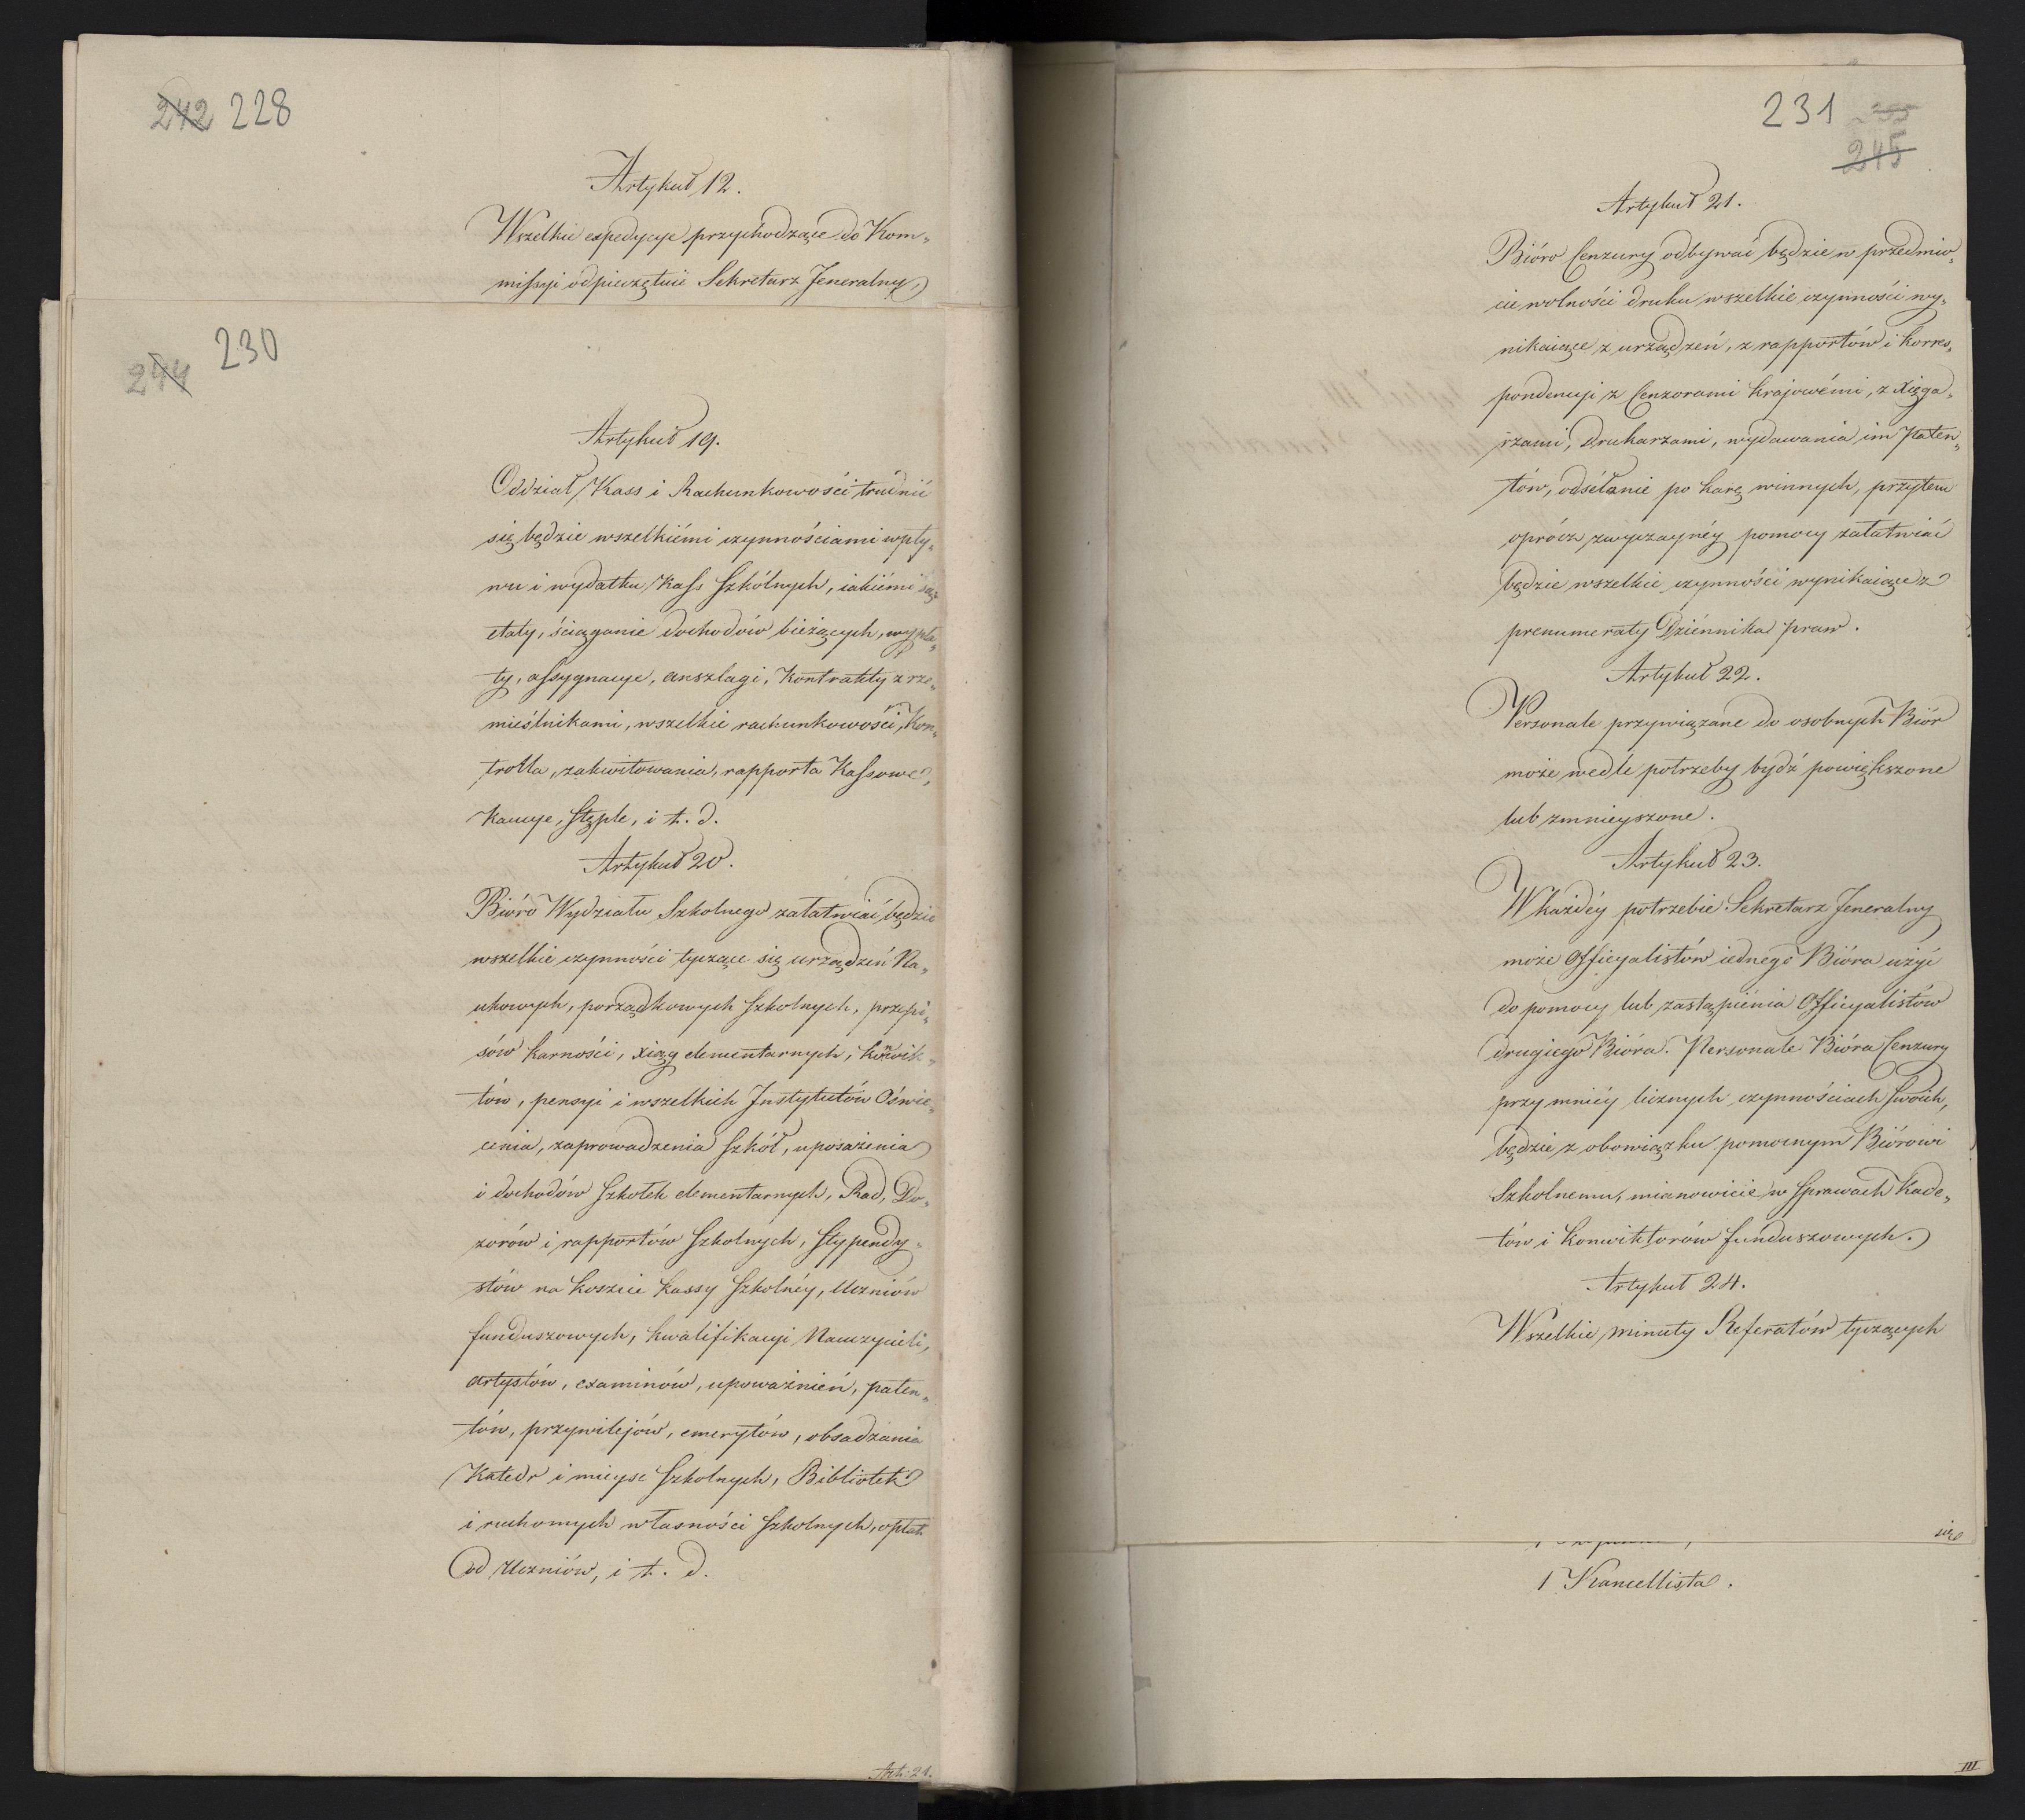 242 228
Artykuł 12.
Wszelkie expedycye przychodzące do Kom„
missyi odpieczętuie Sekretarz Jeneralny,
230
244
Artykuł 19.
Oddział Kass i Rachunkowości trudnić
się będzie wszelkiémi czynnościami wpły„
wu i wydatku Kass Szkólnych, iakiémi są:
etaty, ściąganie dochodów bieżących, wypła„
ty, assygnacye, anszlagi, Kontrakty z rze„
mieślnikami, wszelkie rachunkowości, Kon„
trolla, zakwitowania, rapporta Kassowe,
Kaucye, Stęple, i t. d.
Artykuł 20.
Bióro Wydziału Szkolnego załatwiać będzie
wszelkie czynności tyczące się urządzeń Na„
ukowych, porządkowych Szkolnych, przepi„
sów karności, xiąg elementarnych, konwik„
tów, pensyi i wszelkich Instytutów Oświe„
cenia, zaprowadzenia Szkół, uposażenia
i dochodów Szkołek elementarnych, Rad, Do„
zorów i rapportów Szkolnych, Stypendy„
stów na koszcie kassy Szkolnéy, Uczniów
funduszowych, kwalifikacyi Nauczycieli,
artystów, examinów, upoważnień, paten„
tów, przywilejów, emerytów, obsadzania
Katedr i mieysc Szkolnych, Bibliotek
i ruchomych własności Szkolnych, opłat
od Uczniów, i t. d.
Art: 21.
231
245
Artykuł 21.
Bióro Cenzury odbywać będzie w przedmio„
cie wolności druku wszelkie czynności wy„
nikaiące z urządzeń, z rapportów i korres„
pondencyi z Cenzorami krajowémi, z xięga„
rzami, Drukarzami, wydawania im Paten„
tów, odsełanie po karę winnych, przytem
oprócz zwyczaynéy pomocy załatwiać
będzie wszelkie czynności wynikaiące z
prenumeraty Dziénnika praw.
Artykuł 22.
Personale przywiązane do osobnych Biór
może wedle potrzeby bydź powiększone
lub zmnieyszone.
Artykuł 23.
W każdéy potrzebie Sekretarz Jeneralny
może Officyalistów iednego Bióra użyć
do pomocy lub zastąpiénia Officyalistów
drugiego Bióra. Personale Bióra Cenzury
przy mniéy licznych czynnościach swoich,
będzie z obowiązku pomocnym Biórowi
Szkolnemu, mianowicie w Sprawach Kade„
tów i Konwiktorów funduszowych.
Artykuł 24.
Wszelkie minuty Referatów tyczących
się
1 Kancellista.
III